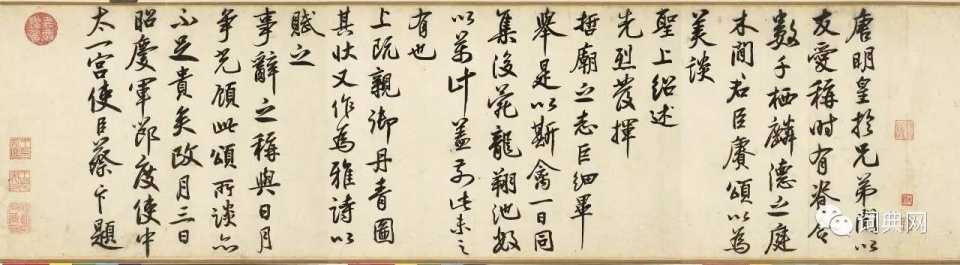 唐明皇於兄弟間以
友愛稱時有脊令
數千栖麟德之庭
木間君臣賡頌以為
美談
聖上紹述
先烈發揮
哲廟之志臣細畢
舉是以斯禽一日同
集後苑龍翔池數
以萬計蓋前此未之
有也
上既親御丹青圖
其狀又作為雅詩以
賦之
事辭之稱與日月
爭光顧此頌所談亦
不足貴矣政月三日
昭慶軍節度使中
太一宮使臣蔡卞題
聞典网